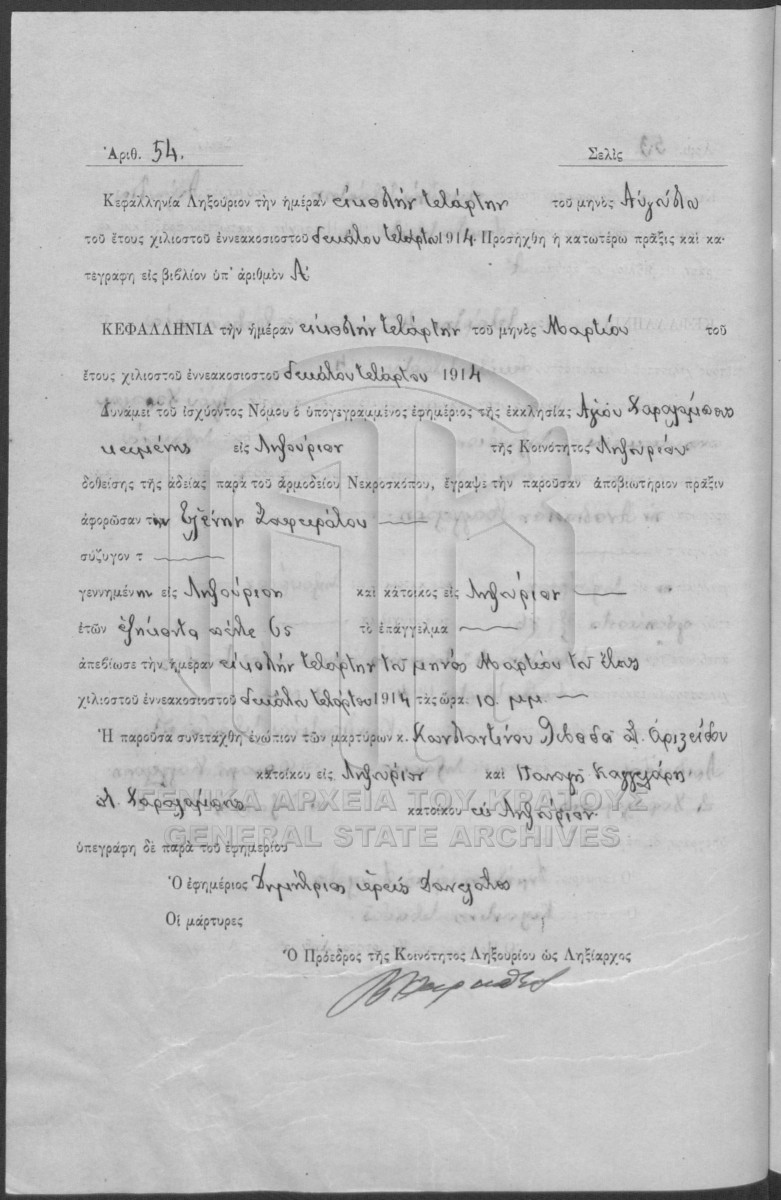 Ἀριθ. 54. Σελὶς
Κεφαλληνία Ληξούριον τὴν ἡμέραν εἰκοστὴν τετάρτην τοῦ μηνὸς Αὐγούστου
τοῦ ἔτους χιλιοστοῦ ἐννεακοσιοστοῦ δεκάτου τετάρτου 1914. Προσήχθη ἡ κατωτέρω πρᾶξις καὶ κα-
τεγραφη εἰς βιβλίον ὑπ' ἀριθμὸν Α'
ΚΕΦΑΛΛΗΝΙΑ τὴν ἡμέραν εἰκοστὴν τετάρτην τοῦ μηνὸς Μαρτίου τοῦ
ἔτους χιλιοστοῦ ἐννεακοσιοστοῦ δεκάτου τετάρτου 1914
Δυνάμει τοῦ ἰσχύοντος Νόμου ὁ ὑπογεγραμμένος ἐφημέριος τῆς ἐκκλησίας Ἁγίου Χαραλάμπους
κειμένης εἰς Ληξούριον τῆς Κοινότητος Ληξουρίου
δοθείσης τῆς ἀδείας παρὰ τοῦ ἁρμοδείου Νεκροσκόπου, ἔγραψε τὴν παροῦσαν ἀποβιωτήριον πρᾶξιν
ἀφορῶσαν την Ἑλένην
σύζυγον τ
γεννημένην εἰς Ληξούριον καὶ κάτοικος εἰς Ληξούριον
ἐτῶν ἑξήκοντα πέντε 65 τὸ ἐπάγγελμα
ἀπεβίωσε τὴν ἡμέραν εἰκοστὴν τετάρτην τοῦ μηνὸς Μαρτίου τοῦ ἔτους
χιλιοστοῦ ἐννεακοσιοστοῦ δεκάτου τετάρτου 1914 τὰς ὥρα. 10 μμ.
Ἡ παροῦσα συνετάχθη ἐνώπιον τῶν μαρτύρων κ. Κωνσταντίνου Λιβαδᾶ
κατοίκου εἰς Ληξούριον καὶ Παναγῆ
Χαραλάμπους κατοίκου εἰς Ληξούριον.
ΓΕΝΙΚΑ ΑΡΧΕΙΑ ΤΟΥ ΚΡΑΤΟΥΣ
GENERAL STATE ARCHIVES
ὑπεγράφη δὲ παρὰ τοῦ ἐφημερίου
Ὁ ἐφημέριος Δημήτριος ἱερεὺς
Οἱ μάρτυρες
Ὁ Πρόεδρος τῆς Κοινότητος Ληξουρίου ὡς Ληξίαρχος